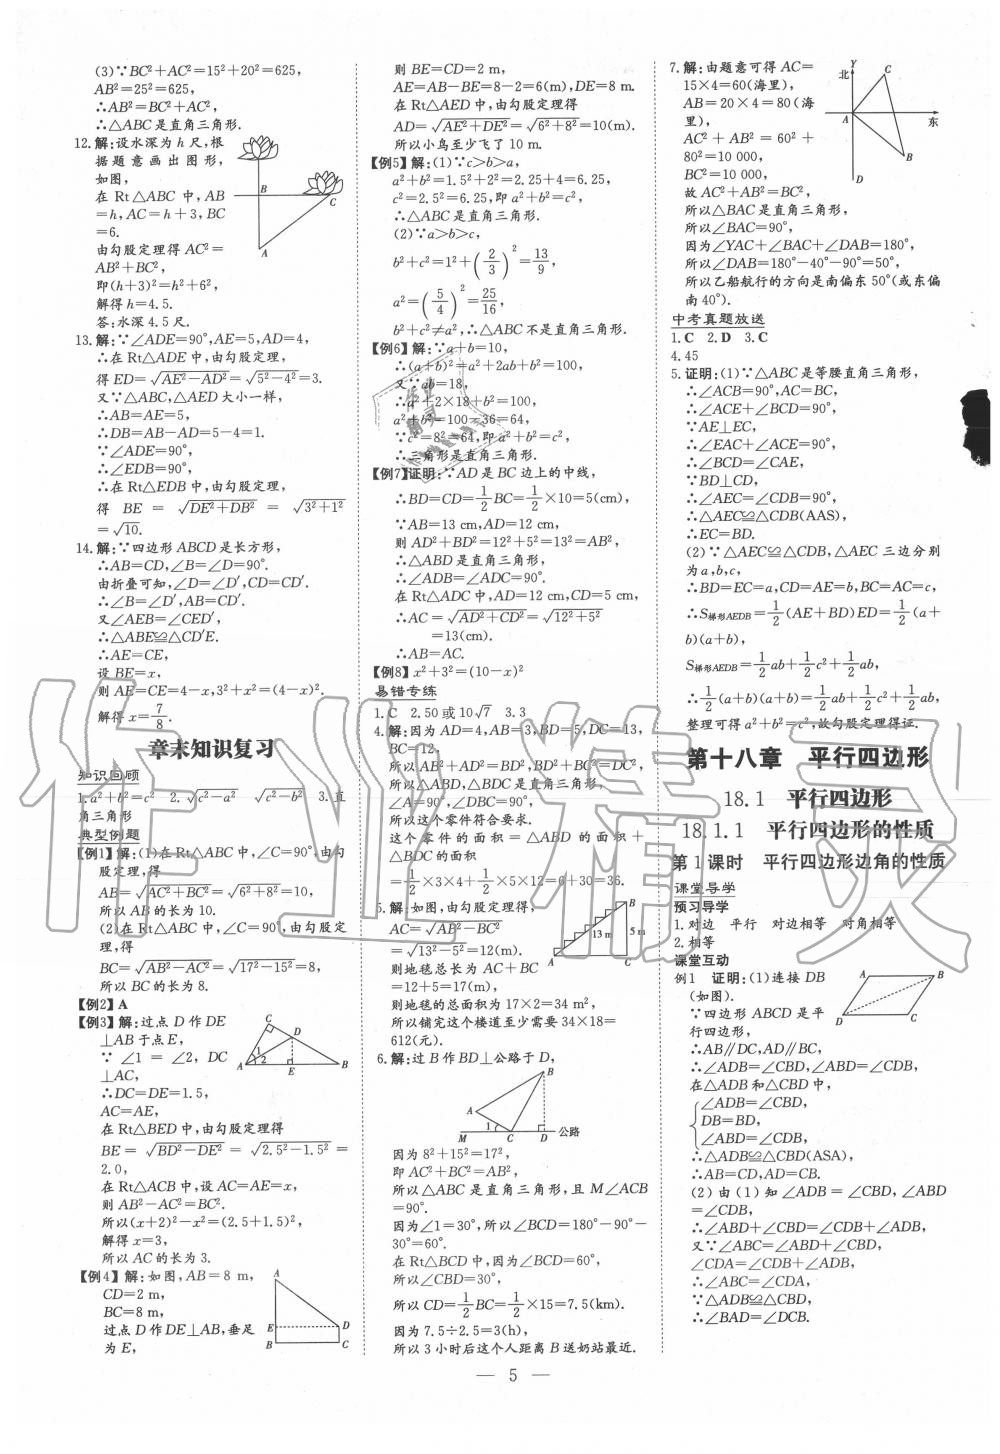 (3)∵BC²+AC²=15²+20²=625,
AB²=25²=625,
∴AB²=BC²+AC²,
∴△ABC是直角三角形.
12.解:设水深为h尺,根
据题意画出图形,
如图,
在Rt△ABC中,AB
=h,AC=h+3,BC
=6.
由勾股定理得AC²=
AB²+BC²,
即(h+3)²=h²+6²,
解得h=4.5.
答:水深4.5尺.
B
C
A
13.解:∵∠ADE=90°,AE=5,AD=4,
∴在Rt△ADE中,由勾股定理,
得ED=√(AE²-AD²)=√(5²-4²)=3.
又∵△ABC,△AED大小一样,
∴AB=AE=5,
∴DB=AB-AD=5-4=1.
∵∠ADE=90°,
∴∠EDB=90°.
∴在Rt△EDB中,由勾股定理,
得 BE = √(DE²+DB²) = √(3²+1²)
=√10.
14.解:∵四边形ABCD是长方形,
∴AB=CD,∠B=∠D=90°.
由折叠可知,∠D=∠D′,CD=CD′.
∴∠B=∠D′,AB=CD′.
又∠AEB=∠CED′,
∴△ABE≌△CD′E.
∴AE=CE,
设BE=x,
则AE=CE=4-x,3²+x²=(4-x)².
解得x=7/8.
章末知识复习
知识回顾
1.a²+b²=c² 2.√(c²-a²) √(c²-b²) 3.直
角三角形
典型例题
【例1】解:(1)在Rt△ABC中,∠C=90°,由勾
股定理,得
AB=√(AC²+BC²)=√(6²+8²)=10,
所以AB的长为10.
(2)在Rt△ABC中,∠C=90°,由勾股定
理,得
BC=√(AB²-AC²)=√(17²-15²)=8,
所以BC的长为8.
【例2】A
【例3】解:过点D作DE
⊥AB于点E,
∵∠1=∠2,DC
⊥AC,
∴DC=DE=1.5,
AC=AE,
在Rt△BED中,由勾股定理得
BE = √(BD²-DE²) = √(2.5²-1.5²) =
2.0,
在Rt△ACB中,设AC=AE=x,
则AB²-AC²=BC².
所以(x+2)²-x²=(2.5+1.5)²,
解得x=3,
所以AC的长为3.
C
D
1
2
A
E
B
【例4】解:如图,AB=8 m,
CD=2 m,
BC=8 m,
过点D作DE⊥AB,垂足
为E,
A
E
D
B
C
则BE=CD=2 m,
AE=AB-BE=8-2=6(m),DE=8 m.
在Rt△AED中,由勾股定理得
AD=√(AE²+DE²)=√(6²+8²)=10(m).
所以小鸟至少飞了10 m.
【例5】解:(1)∵c>b>a,
a²+b²=1.5²+2²=2.25+4=6.25,
c²=2.5²=6.25,即a²+b²=c²,
∴△ABC是直角三角形.
(2)∵a>b>c,
b²+c²=1²+(2/3)²=13/9,
a²=(5/4)²=25/16,
b²+c²≠a²,∴△ABC不是直角三角形.
【例6】解:∵a+b=10,
∴(a+b)²=a²+2ab+b²=100,
又∵ab=18,
∴a²+2×18+b²=100,
a²+b²=100-36=64,
∵c²=8²=64,即a²+b²=c²,
∴三角形是直角三角形.
【例7】证明:∵AD是BC边上的中线,
∴BD=CD=1/2BC=1/2×10=5(cm),
∵AB=13 cm,AD=12 cm,
则AD²+BD²=12²+5²=13²=AB²,
∴△ABD是直角三角形,
∴∠ADB=∠ADC=90°.
在Rt△ADC中,AD=12 cm,CD=5 cm,
∴AC=√(AD²+CD²)=√(12²+5²)
=13(cm).
∴AB=AC.
【例8】x²+3²=(10-x)²
易错专练
1.C 2.50或10√7 3.3
4.解:因为AD=4,AB=3,BD=5,DC=13,
BC=12,
所以AB²+AD²=BD²,BD²+BC²=DC²,
所以△ABD,△BDC是直角三角形,
∠A=90°,∠DBC=90°.
所以这个零件符合要求.
这个零件的面积=△ABD的面积+
△BDC的面积
=1/2×3×4+1/2×5×12=6+30=36.
5.解:如图,由勾股定理得,
AC=√(AB²-BC²)
=√(13²-5²)=12(m).
则地毯总长为AC+BC
=12+5=17(m),
则地毯的总面积为17×2=34 m²,
所以铺完这个楼道至少需要34×18=
612(元).
B
13 m
5 m
A
C
6.解:过B作BD⊥公路于D,
B
A
1
M
C
D
公路
因为8²+15²=17²,
即AC²+BC²=AB²,
所以△ABC是直角三角形,且M∠ACB
=90°.
因为∠1=30°,所以∠BCD=180°-90°-
30°=60°.
在Rt△BCD中,因为∠BCD=60°,
所以∠CBD=30°,
所以CD=1/2BC=1/2×15=7.5(km).
因为7.5÷2.5=3(h),
所以3小时后这个人距离B送奶站最近.
7.解:由题意可得AC=
15×4=60(海里),
AB=20×4=80(海
里),
AC²+AB²=60²+
80²=10 000,
BC²=10 000,
故AC²+AB²=BC²,
所以△BAC是直角三角形,
所以∠BAC=90°,
因为∠YAC+∠BAC+∠DAB=180°,
所以∠DAB=180°-40°-90°=50°,
所以乙船航行的方向是南偏东50°(或东偏
南40°).
Y
北
C
A
东
B
D
中考真题放送
1.C 2.D 3.C
4.45
5.证明:(1)∵△ABC是等腰直角三角形,
∴∠ACB=90°,AC=BC,
∴∠ACE+∠BCD=90°.
∵AE⊥EC,
∴∠EAC+∠ACE=90°.
∴∠BCD=∠CAE,
∵BD⊥CD,
∴∠AEC=∠CDB=90°,
∴△AEC≌△CDB(AAS),
∴EC=BD.
(2)∵△AEC≌△CDB,△AEC三边分别
为a,b,c,
∴BD=EC=a,CD=AE=b,BC=AC=c,
∴S梯形AEDB=1/2(AE+BD)ED=1/2(a+
b)(a+b),
S梯形AEDB=1/2ab+1/2c²+1/2ab,
∴1/2(a+b)(a+b)=1/2ab+1/2c²+1/2ab,
整理可得a²+b²=c²,故勾股定理得证.
第十八章 平行四边形
18.1 平行四边形
18.1.1 平行四边形的性质
第1课时 平行四边形边角的性质
课堂导学
预习导学
1.对边 平行 对边相等 对角相等
2.相等
课堂互动
例1 证明:(1)连接DB
(如图).
∵四边形ABCD是平
行四边形,
∴AB∥DC,AD∥BC,
∴∠ADB=∠CBD,∠ABD=∠CDB,
在△ADB和△CBD中,
∠ADB=∠CBD,
DB=BD,
∠ABD=∠CDB,
∴△ADB≌△CBD(ASA),
∴AB=CD,AD=CB.
A
B
D
C
(2)由(1)知∠ADB=∠CBD,∠ABD
=∠CDB,
∴∠ABD+∠CBD=∠CDB+∠ADB,
又∵∠ABC=∠ABD+∠CBD,
∠CDA=∠CDB+∠ADB,
∴∠ABC=∠CDA,
∵△ADB≌△CBD,
∴∠BAD=∠DCB.
作业精灵
— 5 —